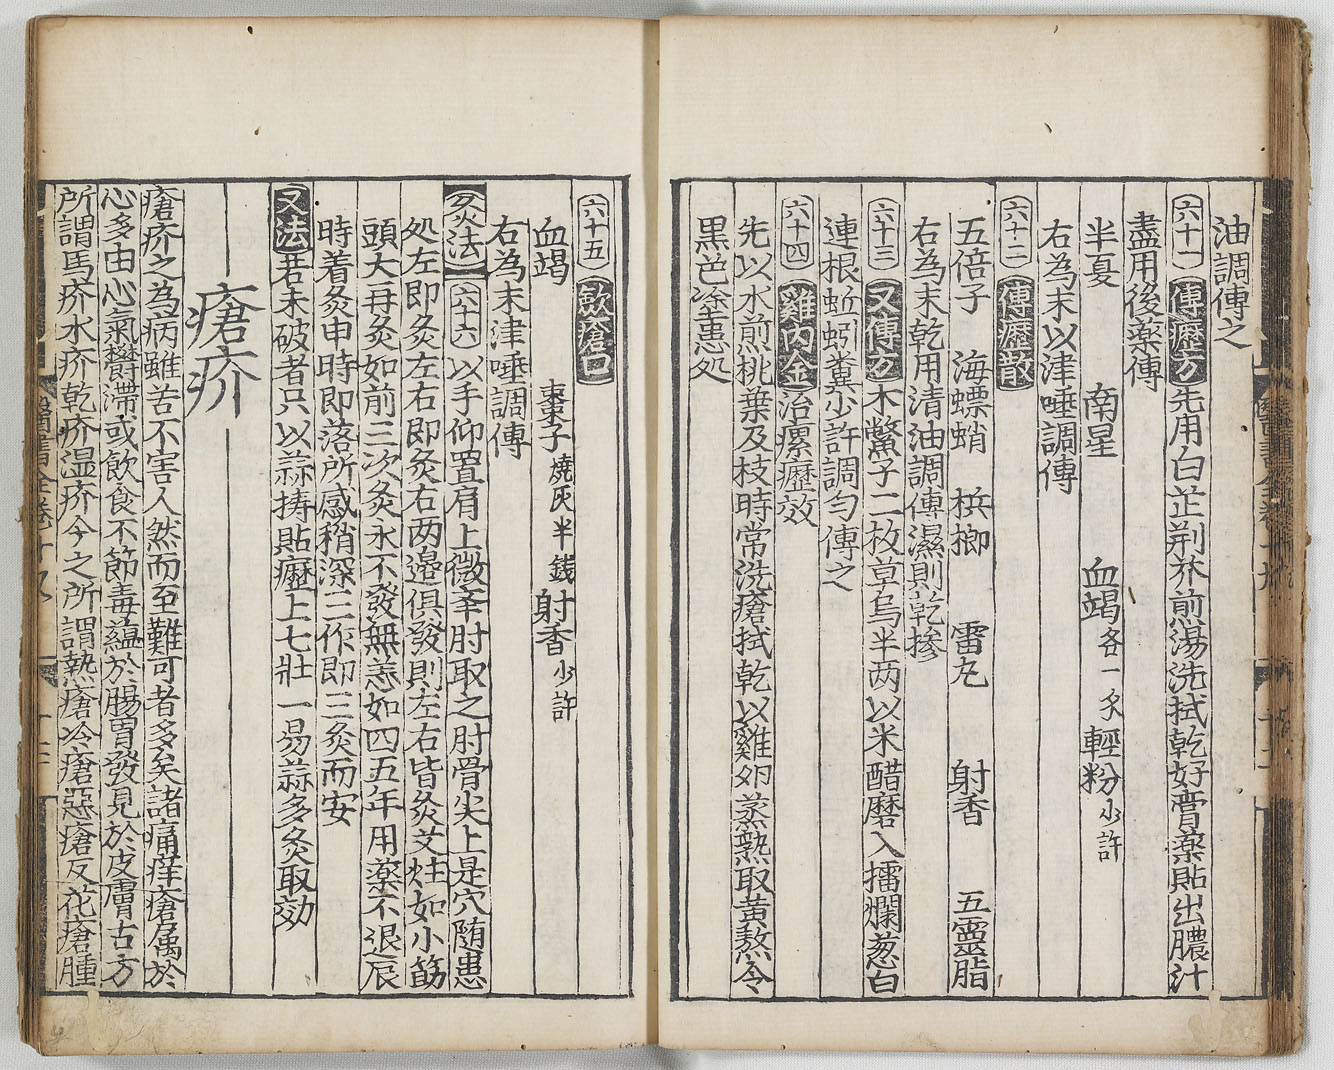 油調傅之
六十一 傅癧方 先用白芷荆芥煎湯洗拭乾好膏藥貼出膿汁
盡用後藥傅
半夏 南星 血竭各一分 輕粉少許
右為末以津唾調傅
六十二 傅癧散
五倍子 海螵蛸 梹榔 雷丸 射香 五靈脂
右為末乾用清油調傅濕則乾摻
六十三 又傅方 木鱉子二枚草烏半两以米醋磨入擂爛葱白
連根蚯蚓糞少許調勻傅之
六十四 雞內金 治瘰癧效
先以水煎桃葉及枝時常洗瘡拭乾以雞卵蒸熟取黃熬令
黑芭塗患处
六十五 歛瘡口
血竭 棗子燒灰半錢 射香少許
右為末津唾調傅
灸法 六十六 以手仰置肩上微本肘取之肘骨尖上是穴随患
処左即灸左右即灸右两邉俱發則左右皆灸艾炷如小筯
頭大再灸如前三次灸永不發無恙如四五年用藥不退辰
時着灸申時即落所感稍深三作即三灸而安
又法 若未破者只以蒜擣貼癧上七壯一易蒜多灸取効
瘡疥
瘡疥之為病雖苦不害人然而至難可者多矣諸痛痒瘡属於
心多由心氣鬱滯或飲食不節毒蘊於腸胃發見於皮膚古方
所謂馬疥水疥乾疥湿疥今之所謂熱瘡冷瘡惡瘡反花瘡腫
醫書全卷十九